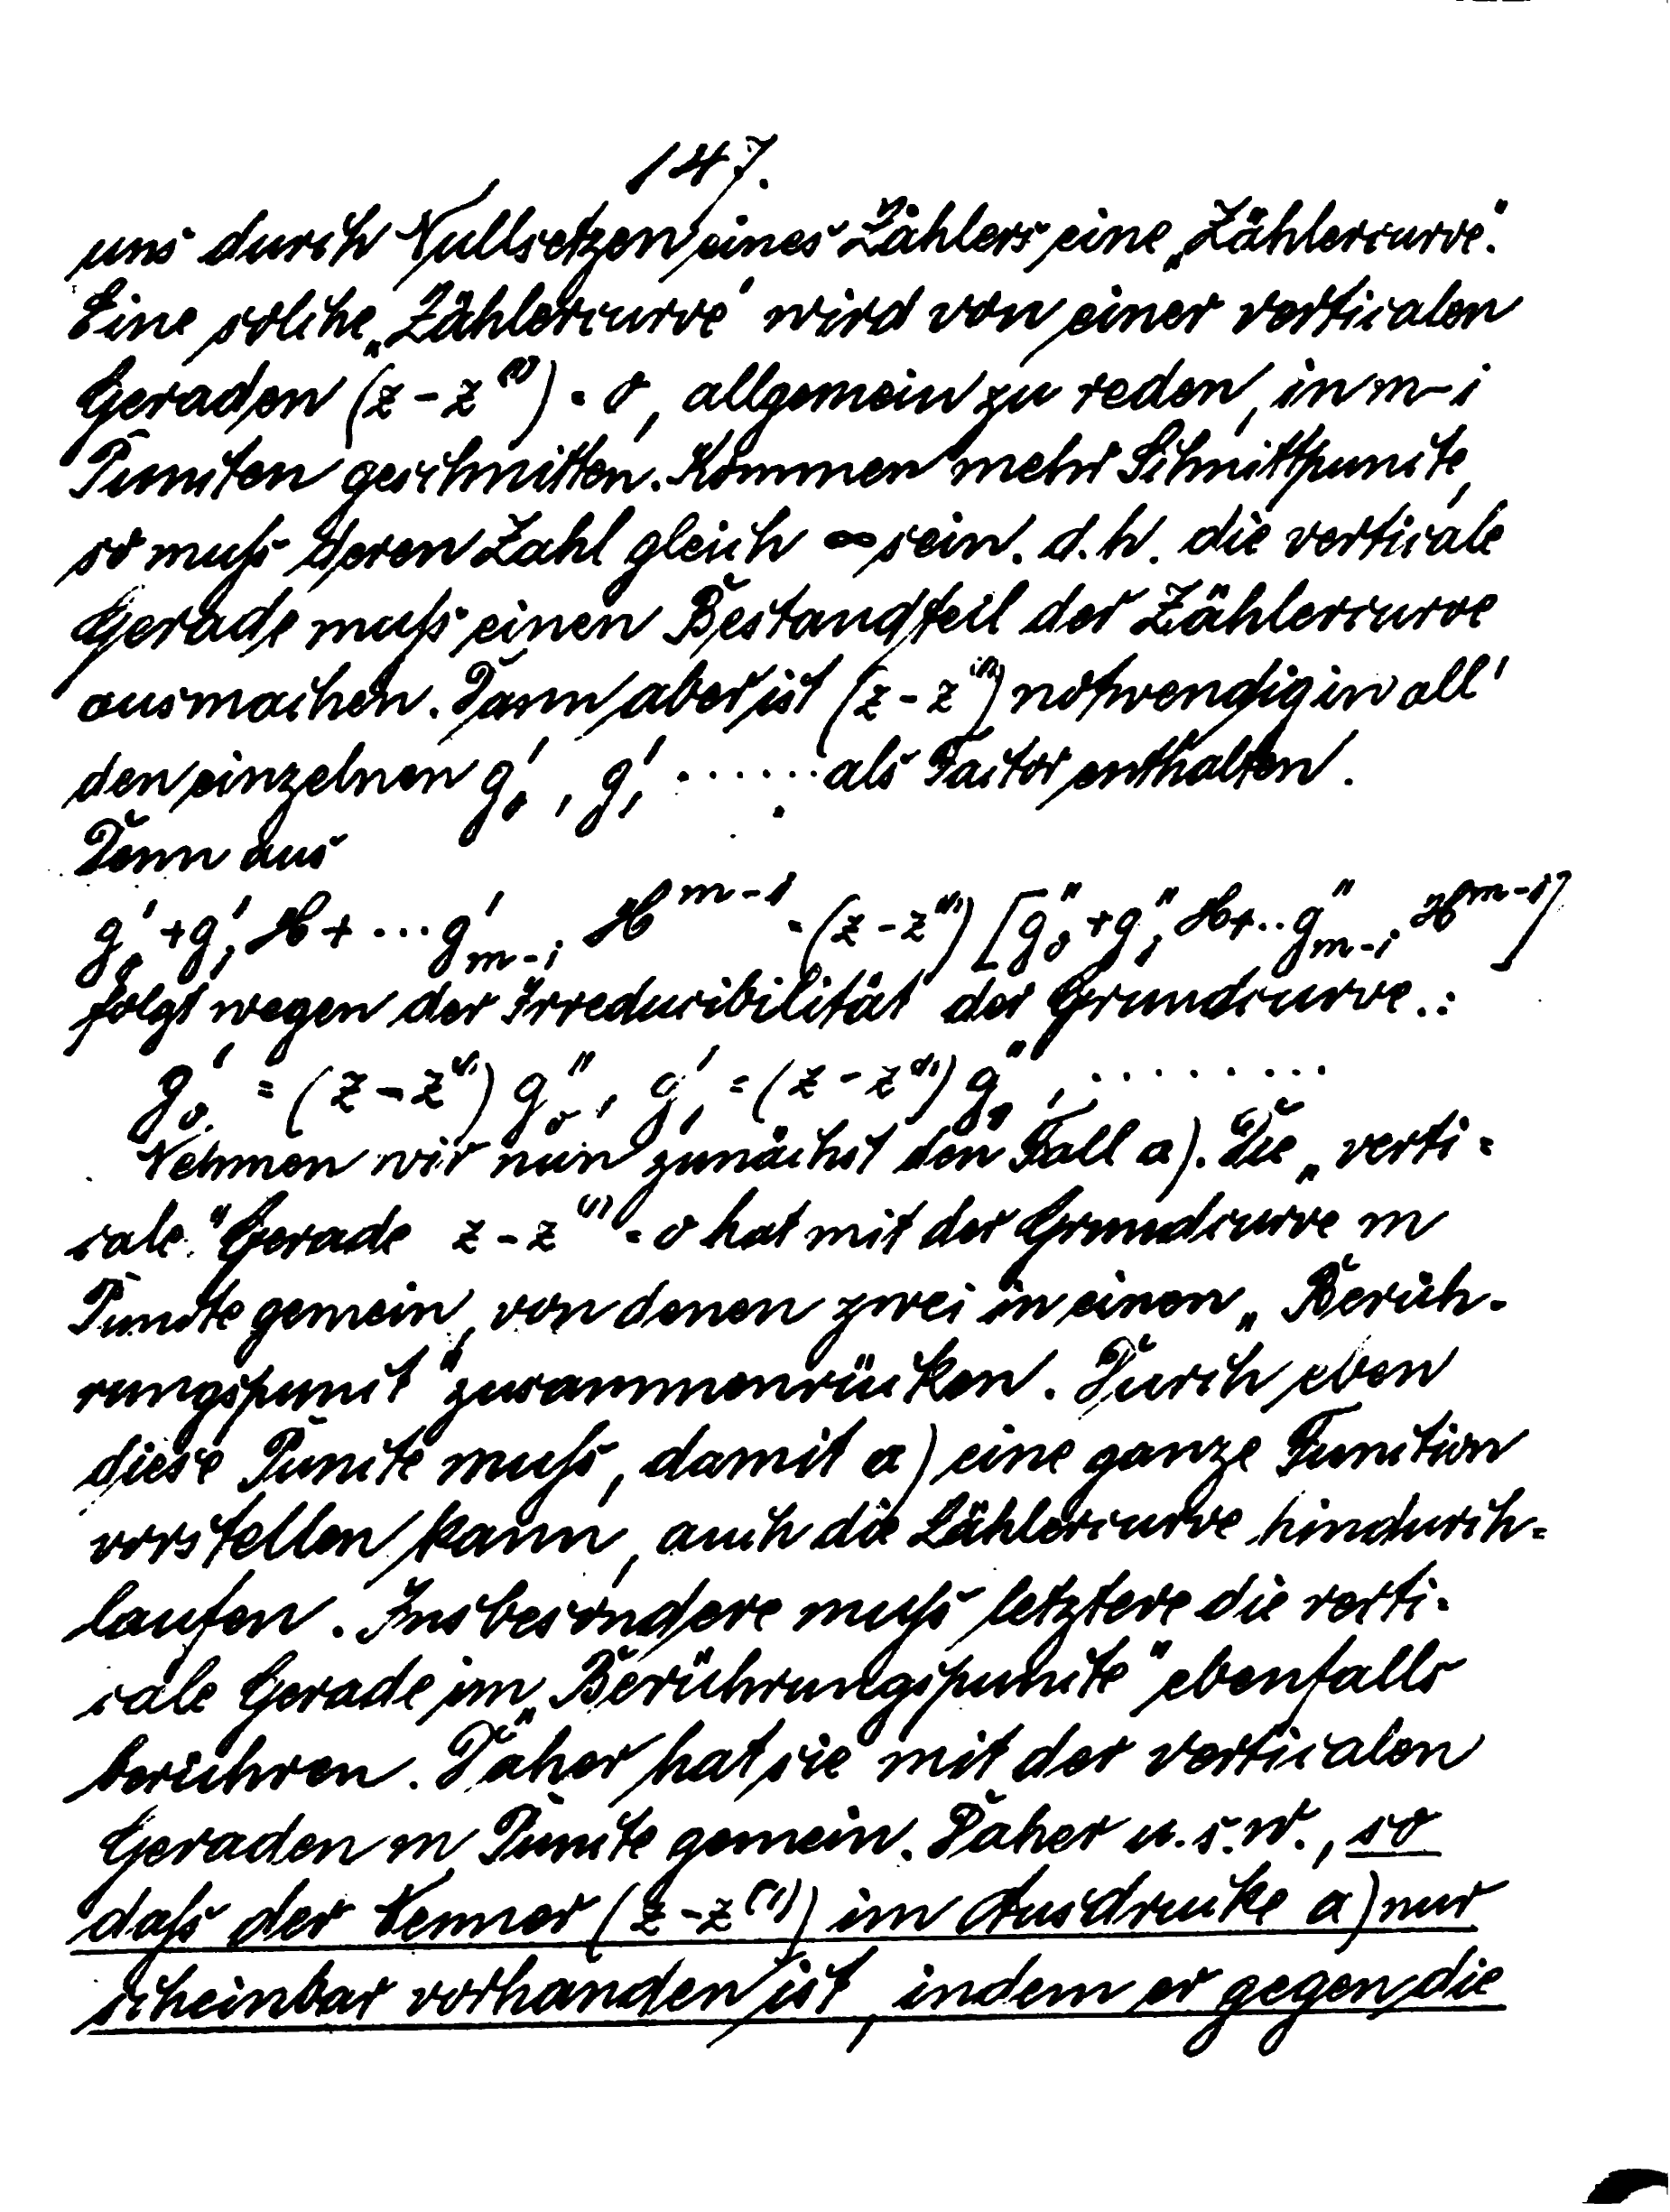 147.
uns durch Nullsetzen eines Zählers eine „Zählercurve".
Eine solche „Zählercurve" wird von einer verticalen
Geraden (z - z⁽¹⁾) = 0, allgemein zu reden, in m-1
Puncten geschnitten. Kommen mehr Schnittpuncte,
so muſs deren Zahl gleich ∞ sein. d.h. die verticale
Gerade muſs einen Bestandteil der Zählercurve
ausmachen. Dann aber ist (z - z⁽¹⁾) notwendig in all'
den einzelnen g₀', g₁' ...... als Factor enthalten.
Denn aus
g₀' + g₁' H + ... g'ₘ₋₁ Hᵐ⁻¹ = (z - z⁽¹⁾) [g₀'' + g₁'' H + .. g''ₘ₋₁ Hᵐ⁻¹]
folgt wegen der Irreducibilität der Grundcurve.:
g₀' = (z - z⁽¹⁾) g₀'', g₁' = (z - z⁽¹⁾) g₁'', .........
Nehmen wir nun zunächst den Fall a). Die „verti=
cale" Gerade z - z⁽¹⁾ = 0 hat mit der Grundcurve m
Puncte gemein, von denen zwei in einen „Berüh-
rungspunct" zusammenrücken. Durch eben
diese Puncte muſs, damit a) eine ganze Function
vorstellen kann, auch die Zählercurve hindurch=
laufen. Insbesondere muſs letztere die verti-
cale Gerade im „Berührungspuncte" ebenfalls
berühren. Daher hat sie mit der verticalen
Geraden m Puncte gemein. Daher u.s.w., so
daſs der Nenner (z - z⁽¹⁾) im Ausdrucke a) nur
scheinbar vorhanden ist, indem er gegen die